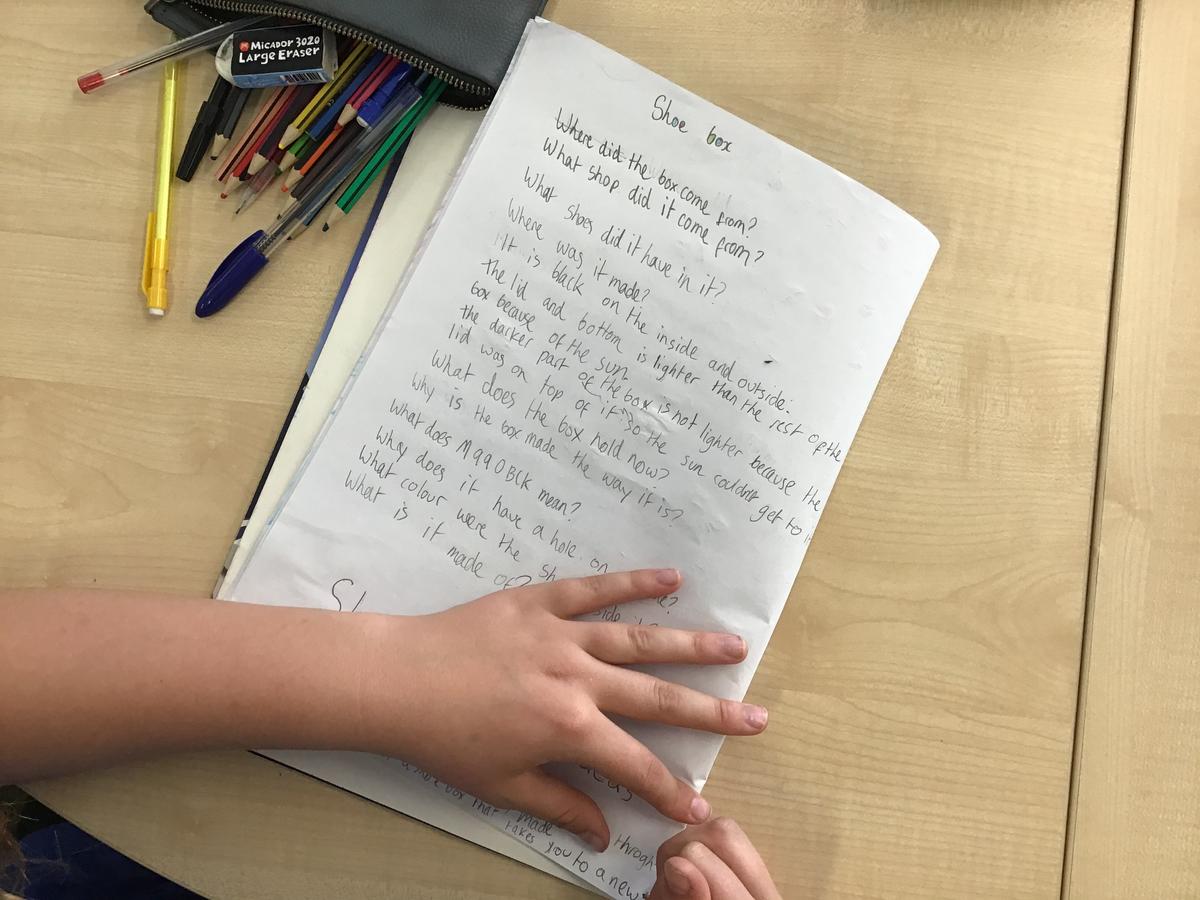 MICADOR 3020
LARGE ERASER
Shoe box
Where did the box come from?
What shop did it come from?
What shoes did it have in it?
Where was it made?
It is black on the inside and outside.
the lid and bottom is lighter than the rest of the
box because of the sun
the darker part of the box is not lighter because the
lid was on top of it so the sun couldn't get to it
What does the box hold now?
Why is the box made the way it is?
What does M990BCK mean?
Why does it have a hole on
What colour were the
What is it made of?
box that made
through
takes you to a new